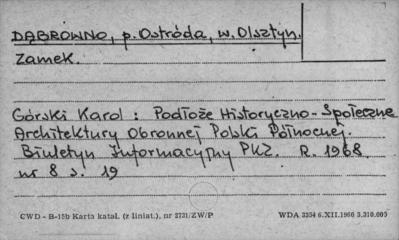 DĄBROWNO, p. Ostróda, w. Olsztyn.
Zamek.
Górski Karol : Podłoże Historyczno-Społeczne
Architektury Obronnej Polski Północnej.
Biuletyn Informacyjny PKZ. R. 1968
nr 8 s. 19
CWD - B-15b Karta katal. (z liniat.), nr 2731/ZW/P WDA 3334 6.XII.1966 3.310.000